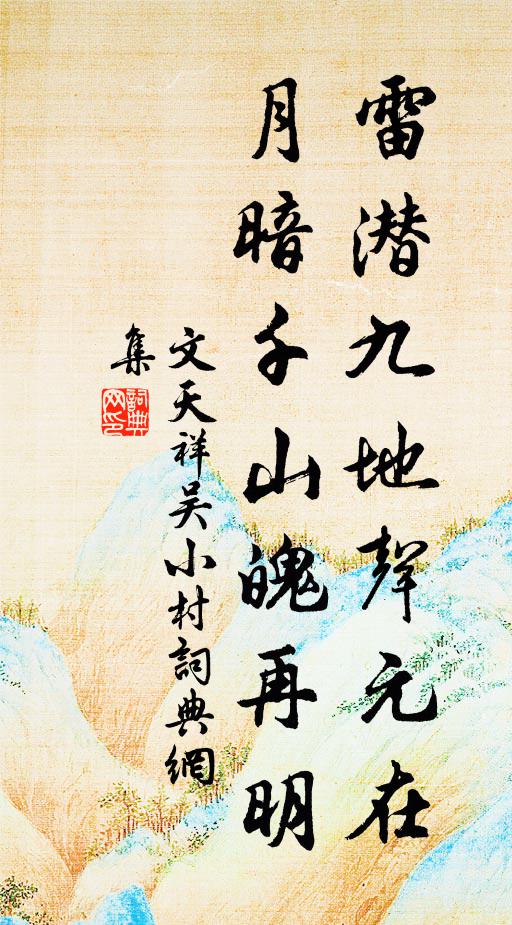 雷潜九地聲元在
月暗千山魄再明
文天祥吴小村詞典網
集
詞典网印